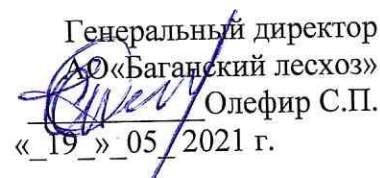 Генеральный директор
АО«Баганский лесхоз»
Олефир С.П.
«_19_»_05_2021 г.